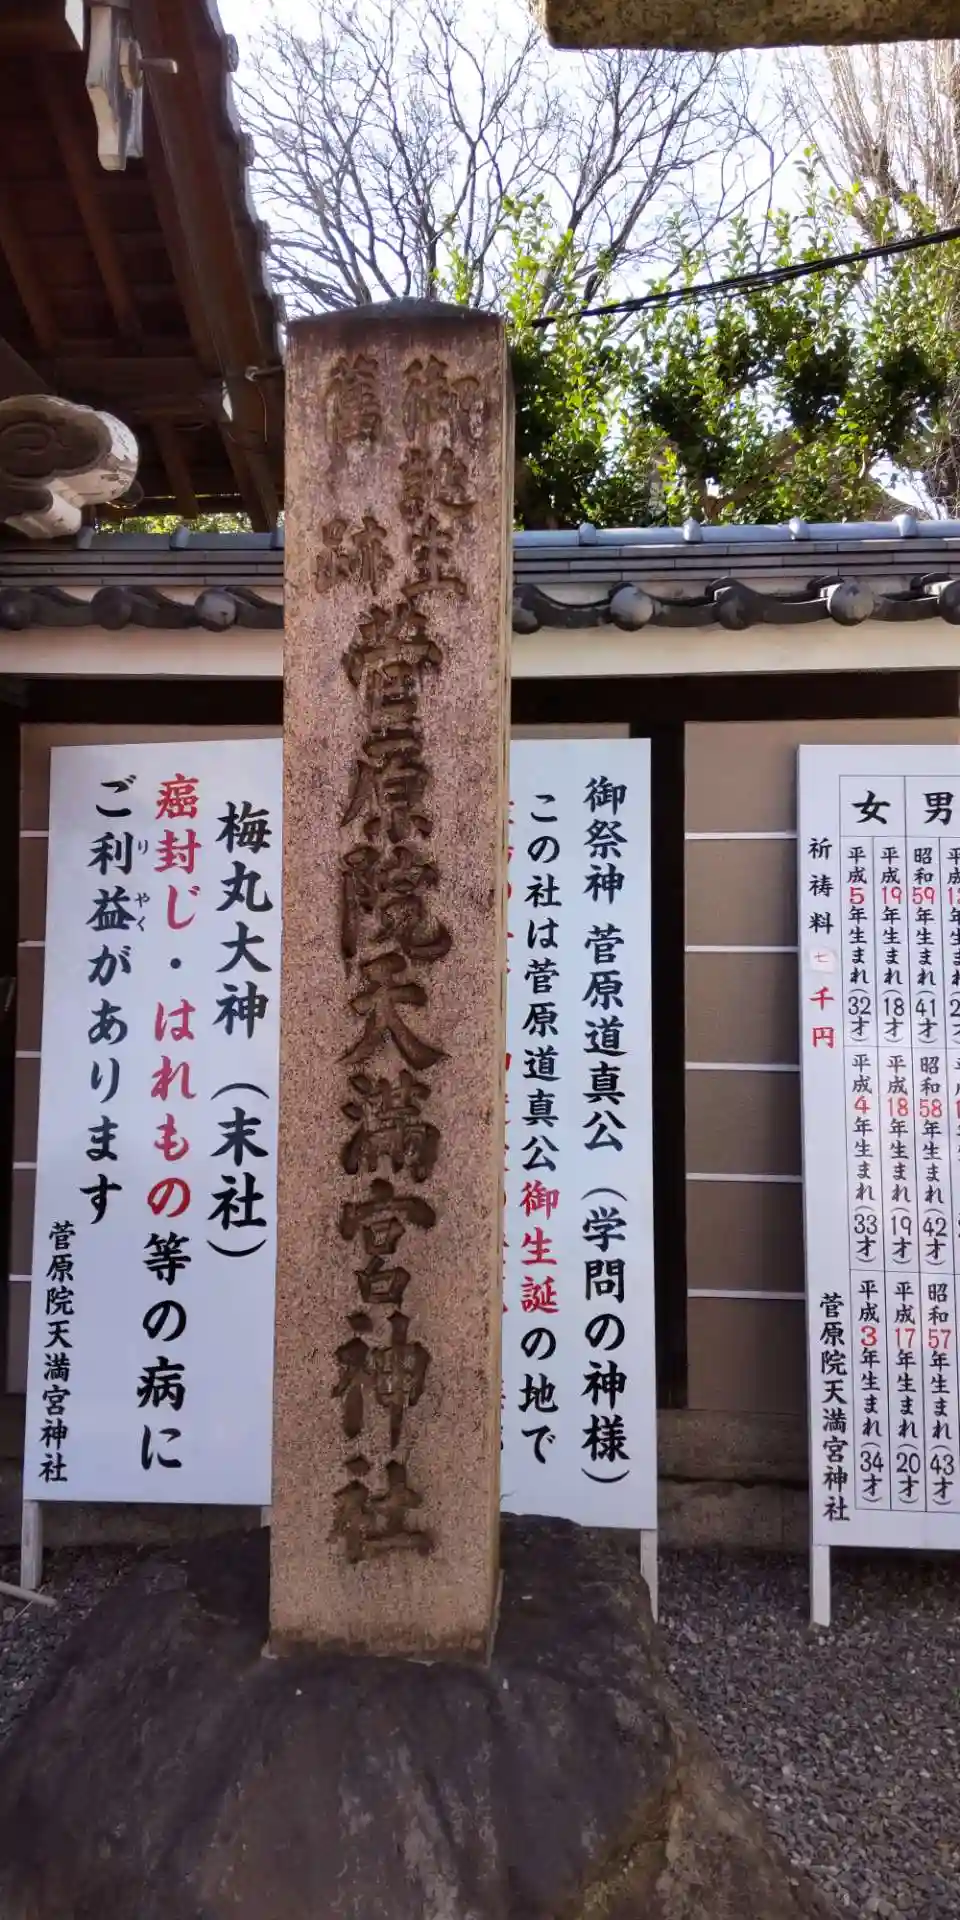 御誕生
舊跡
菅原院天満宮神社
男
女
昭和59年生まれ(41才)
昭和58年生まれ(42才)
昭和57年生まれ(43才)
平成19年生まれ(18才)
平成18年生まれ(19才)
平成17年生まれ(20才)
平成5年生まれ(32才)
平成4年生まれ(33才)
平成3年生まれ(34才)
祈祷料 七千円
菅原院天満宮神社
御祭神 菅原道真公(学問の神様)
この社は菅原道真公御生誕の地で
梅丸大神(末社)
癌封じ・はれもの等の病に
ご利益があります
りやく
菅原院天満宮神社